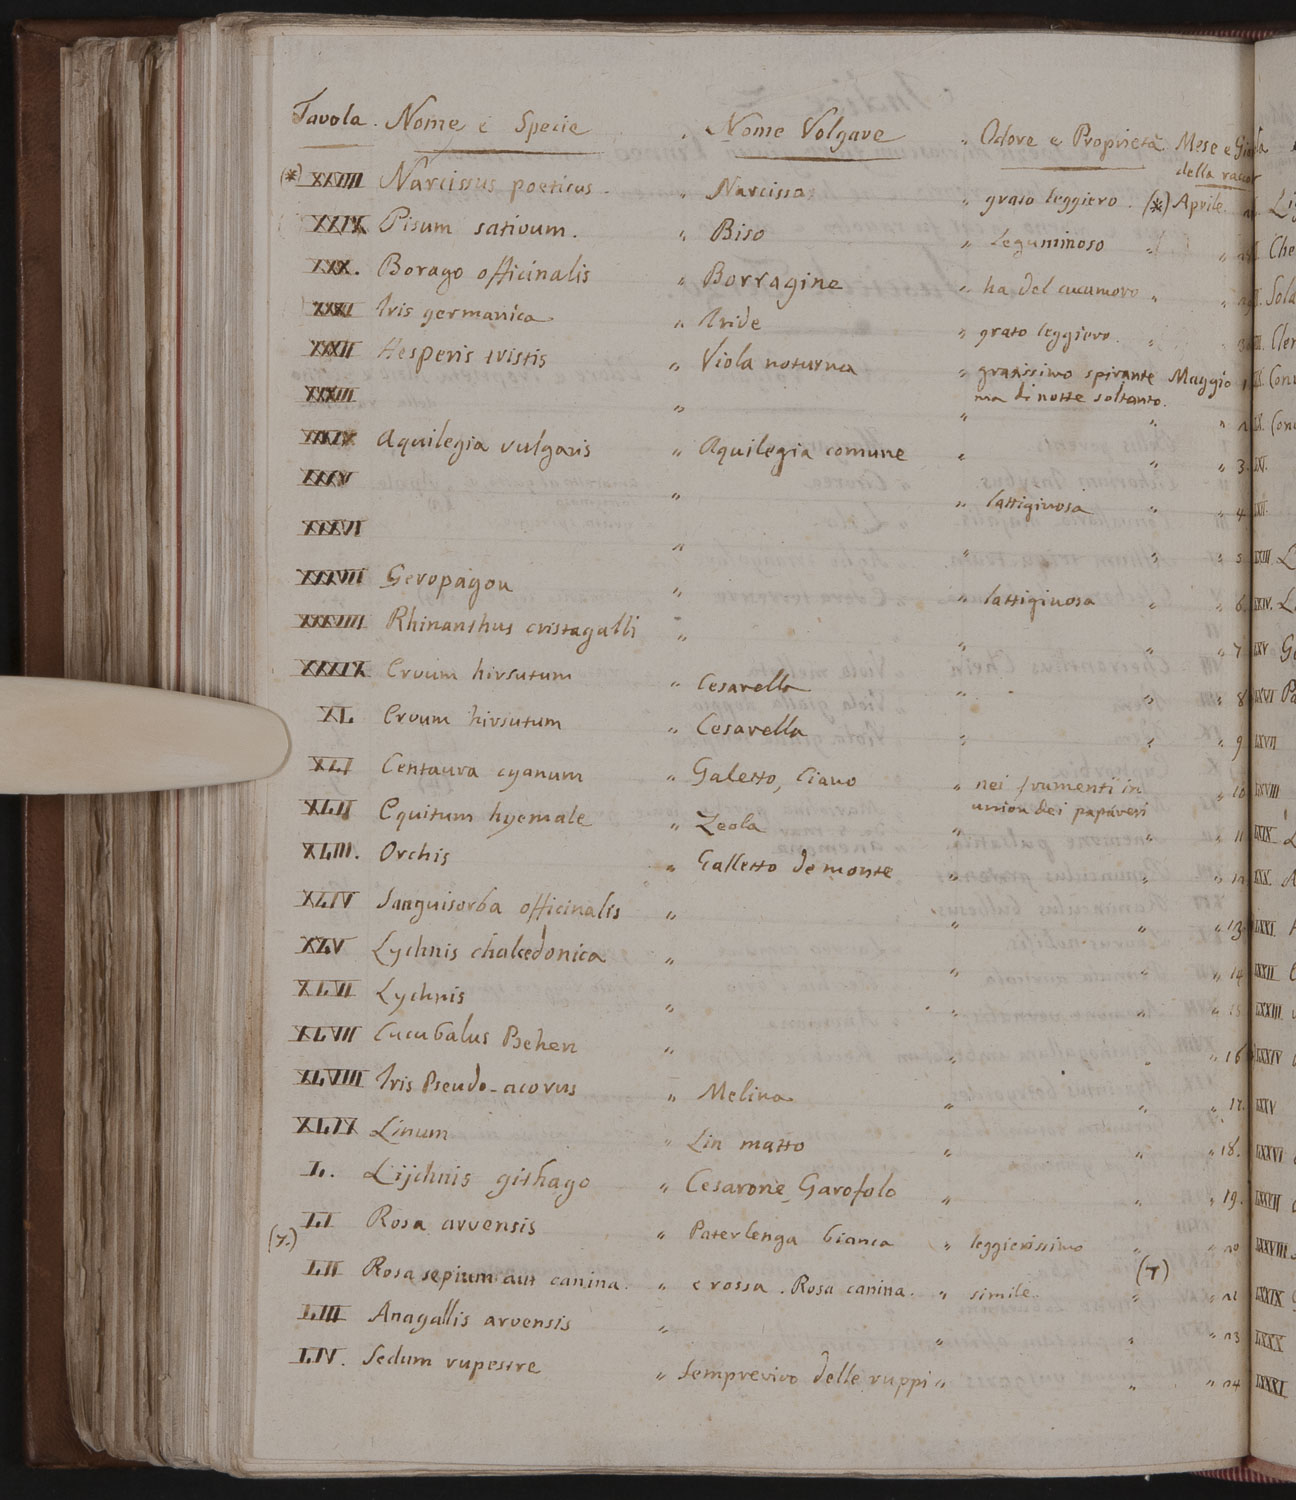 Tavola. Nome e Specie " Nome Volgare " Odore e Proprietà. Mese e
della
(*) XXVIII Narcissus poeticus. " Narcisso " grato leggiero. (*) Aprile
XXIX Pisum sativum. " Biso " Leguminoso " "
XXX. Borago officinalis " Borragine " ha del cucumero " "
XXXI Iris germanica " Iride " grato leggiero. " "
XXXII Hesperis tristis " Viola noturna " gratissimo spirante Maggio 1
ma di notte soltanto.
XXXIII " " " "
XXXIV Aquilegia vulgaris " Aquilegia comune " " " 3
XXXV " " lattiginosa " " 4
XXXVI " " " " 5
XXXVII Geropogon " " lattiginosa " " 6
XXXVIII Rhinanthus cristagalli " " " " 7
XXXIX Ervum hirsutum " Cesarella " " " 8
XL Ervum hirsutum " Cesarella " " " 9
XLI Centaura cyanum " Galetto, Ciano " nei frumenti in " 10
union dei papaveri
XLII Equitum hyemale " Zeola " " " 11
XLIII. Orchis " Galletto de monte " " " 12
XLIV Sanguisorba officinalis " " " " 13
XLV Lychnis chalcedonica " " " " 14
XLVI Lychnis " " " " 15
XLVII Cucubalus Behen " " " " 16
XLVIII Iris Pseudo-acorus " Melina " " " 17
XLIX Linum " Lin matto " " " 18.
L. Lijchnis githago " Cesarone, Garofolo " " " 19.
(T.) LI Rosa arvensis " Paterlenga bianca " leggierissimo " " 20
LII Rosa sepium aut canina. " e rossa. Rosa canina. " simile. (T) " "
LIII Anagallis arvensis " " " " 23
LIV. Sedum rupestre " Semprevivo delle ruppi " " " 24